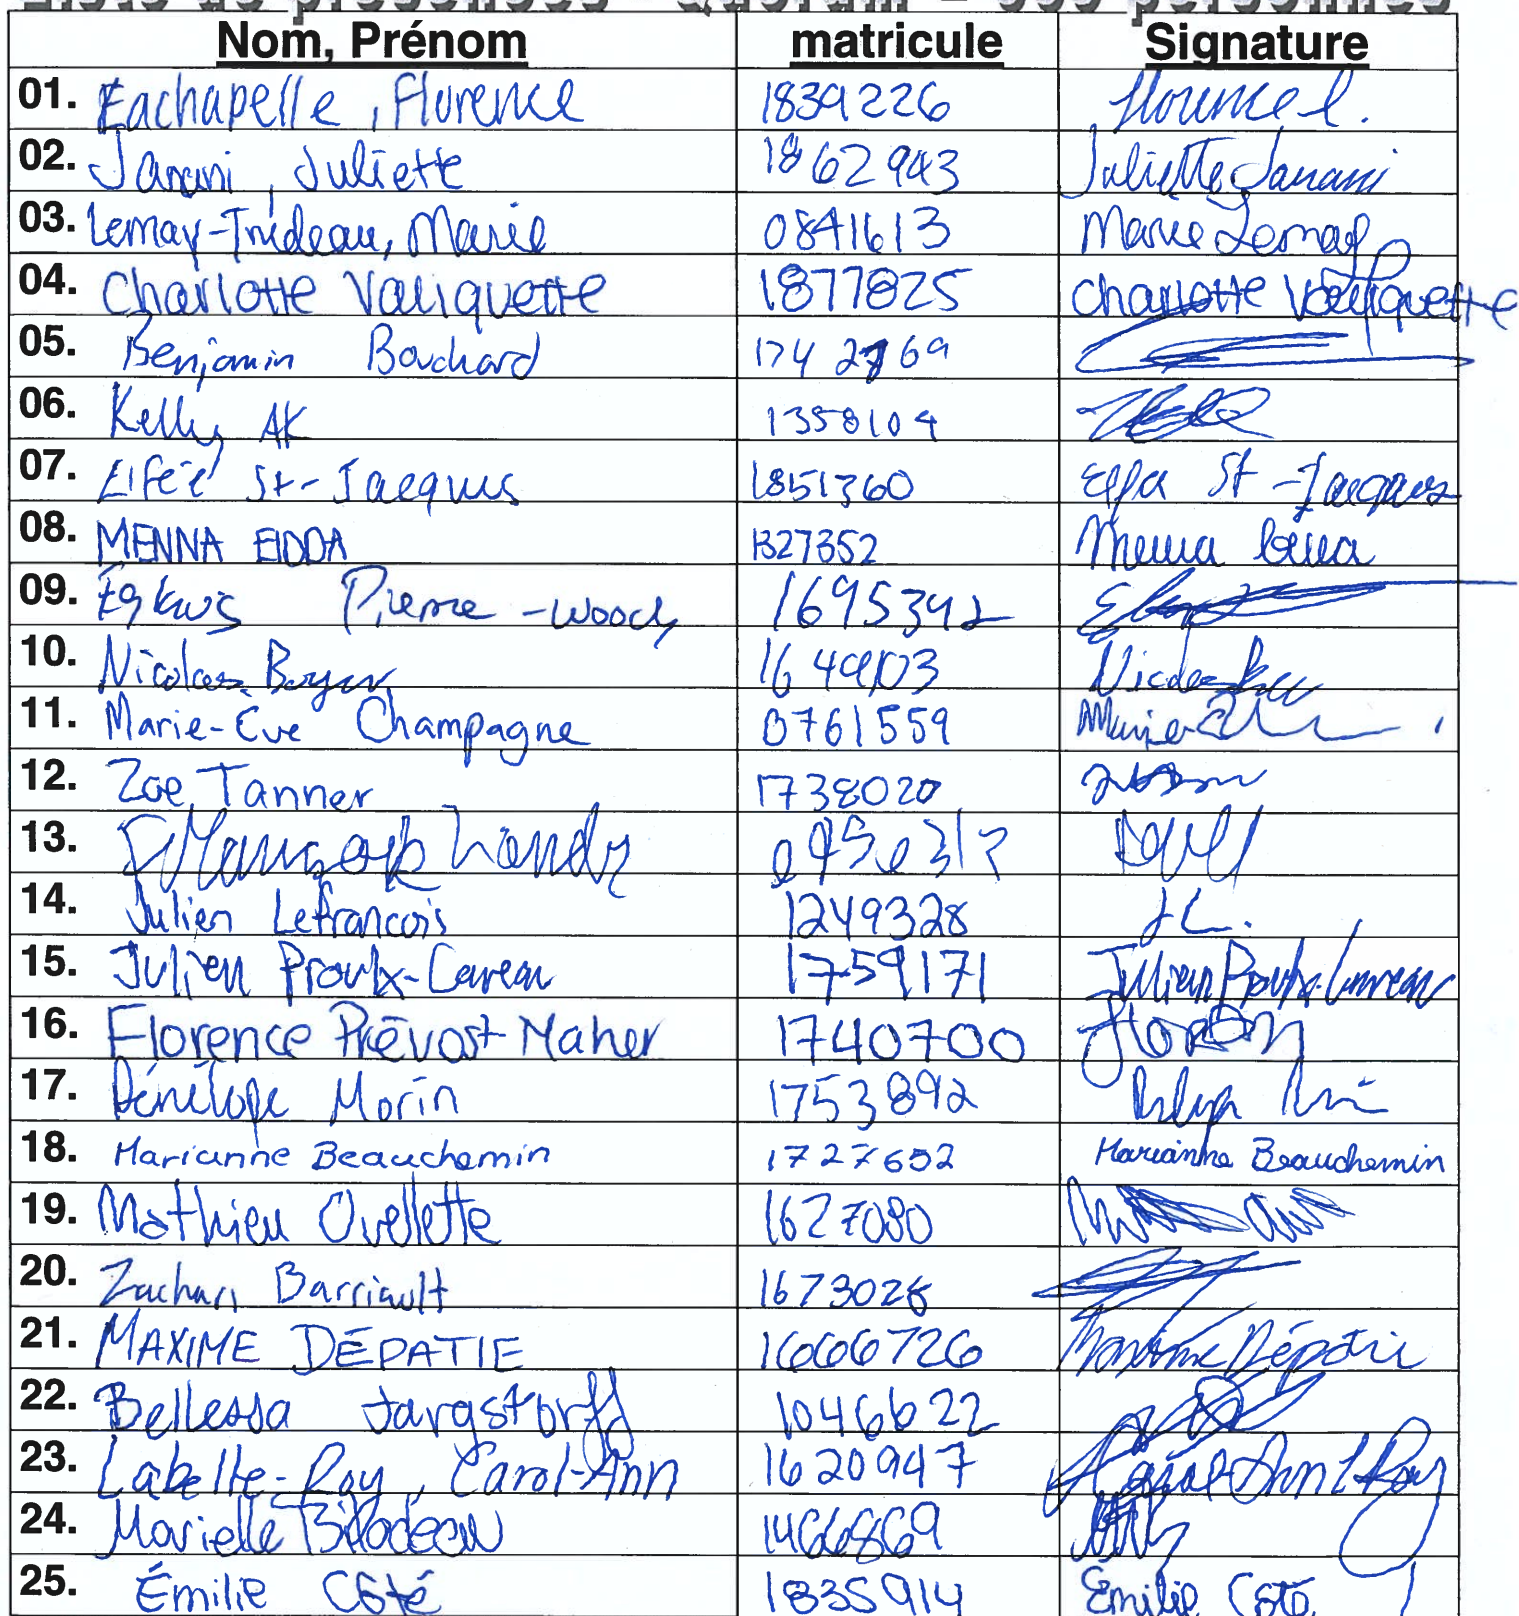 Liste de présences - Quorum - 350 personnes
Nom, Prénom matricule Signature
01. Lachapelle, Florence 1839226 Florence L.
02. Janani, Juliette 1862943 Juliette Janani
03. Lemay-Trudeau, Marie 0841613 Marie Lemay
04. Charlotte Valiquette 1877825 Charlotte Valiquette
05. Benjamin Bouchard 1742769
06. Kelly, AK 1358104
07. St-Jacques 1851360 St-Jacques
08. MENNA EIDDA 1327352 Menna
09. Pierre-Woody 1695342
10. Nicolas Boyer 1649103 Nicolas
11. Marie-Eve Champagne 0761559 Marie
12. Zoe Tanner 1738020
13. Landry
14. Julien Lefrancois 1249328 JL.
15. Julien Proulx-Careau 1759171 Julien Proulx-Careau
16. Florence Prévost-Maher 1740700
17. Pénélope Morin 1753892
18. Marianne Beauchemin 1727652 Marianne Beauchemin
19. Mathieu Ouellette 1627080
20. Zachary Barriault 1673028
21. MAXIME DÉPATIE 1666726 Maxime Dépatie
22. Bellessa Jargstorff 1046622
23. Labelle-Roy, Carol-Ann 1620947 Carol-Ann L Roy
24. Marielle Bilodeau 1466869
25. Émilie Côté 1835914 Émilie Côté